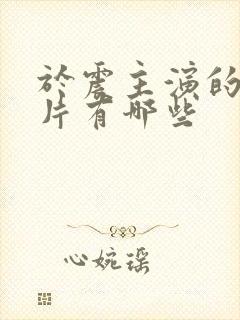 於震主演的
片有哪些
心婉瑶